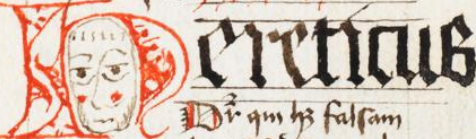 Hereticus
Dr̄ qui hʒ falsam